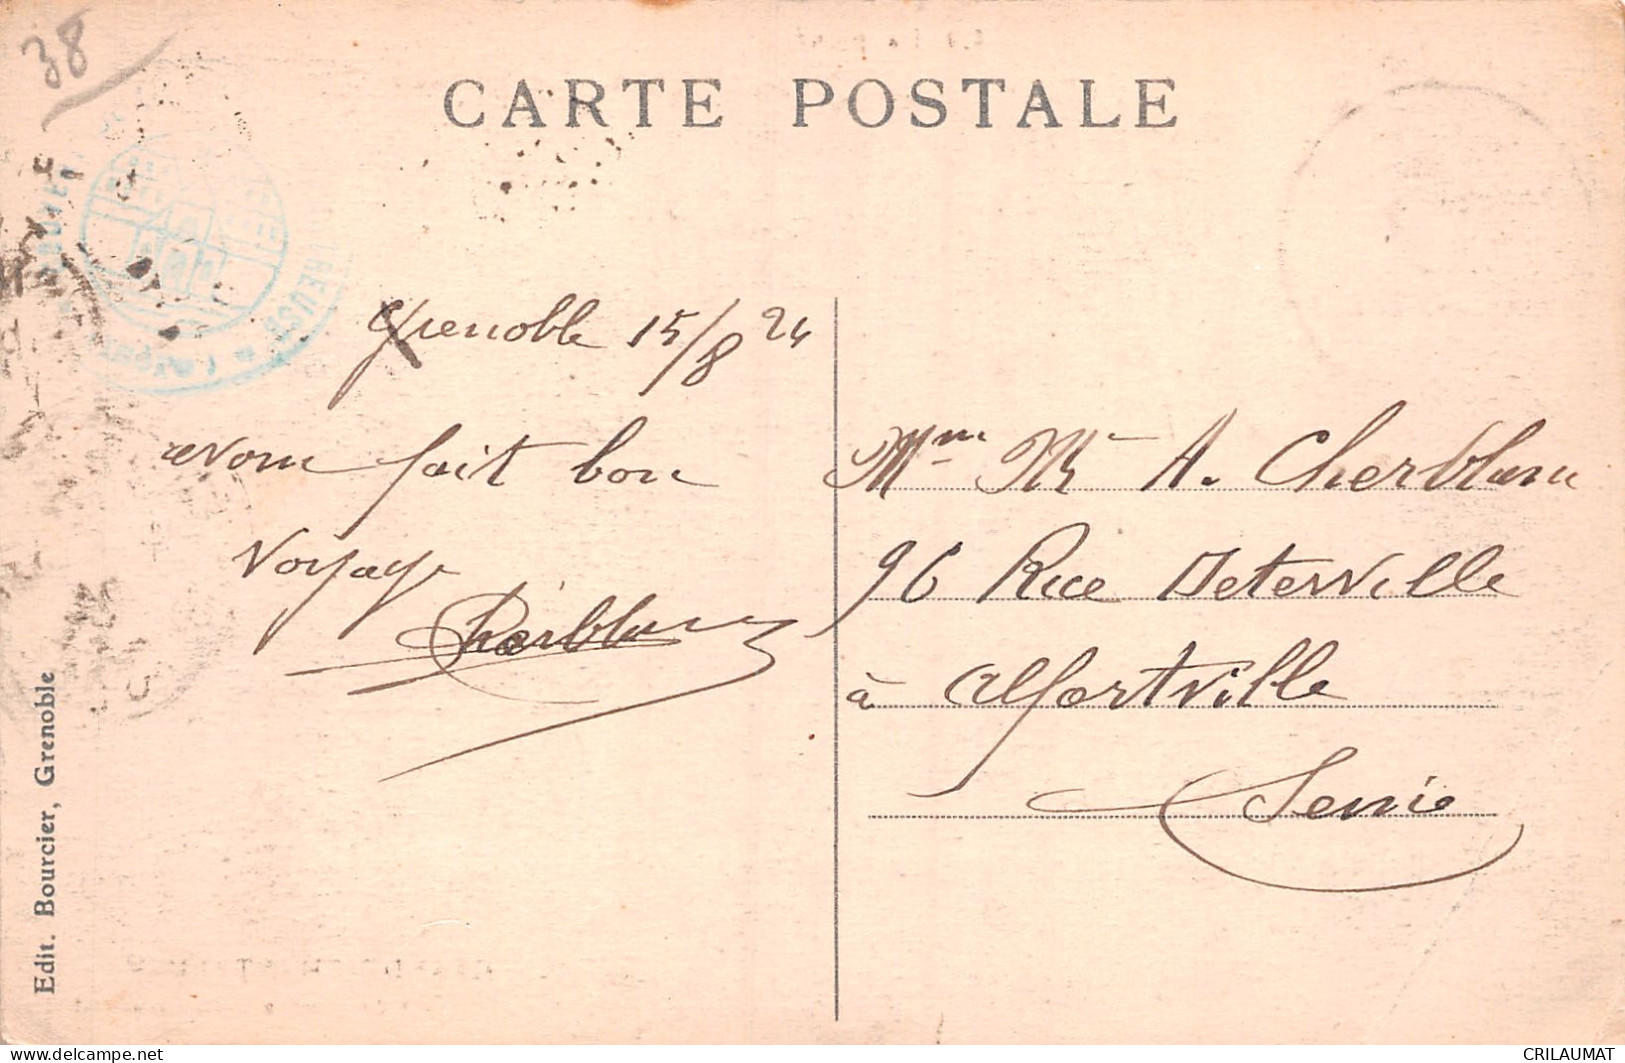 38
CARTE POSTALE
Grenoble 15/8 24
avons fait bon
voyage
Cherblanc
Mme Mr A. Cherblanc
96 Rue Deterville
à Alfortville
Seine
Edit. Bourcier, Grenoble
CRILAUMAT